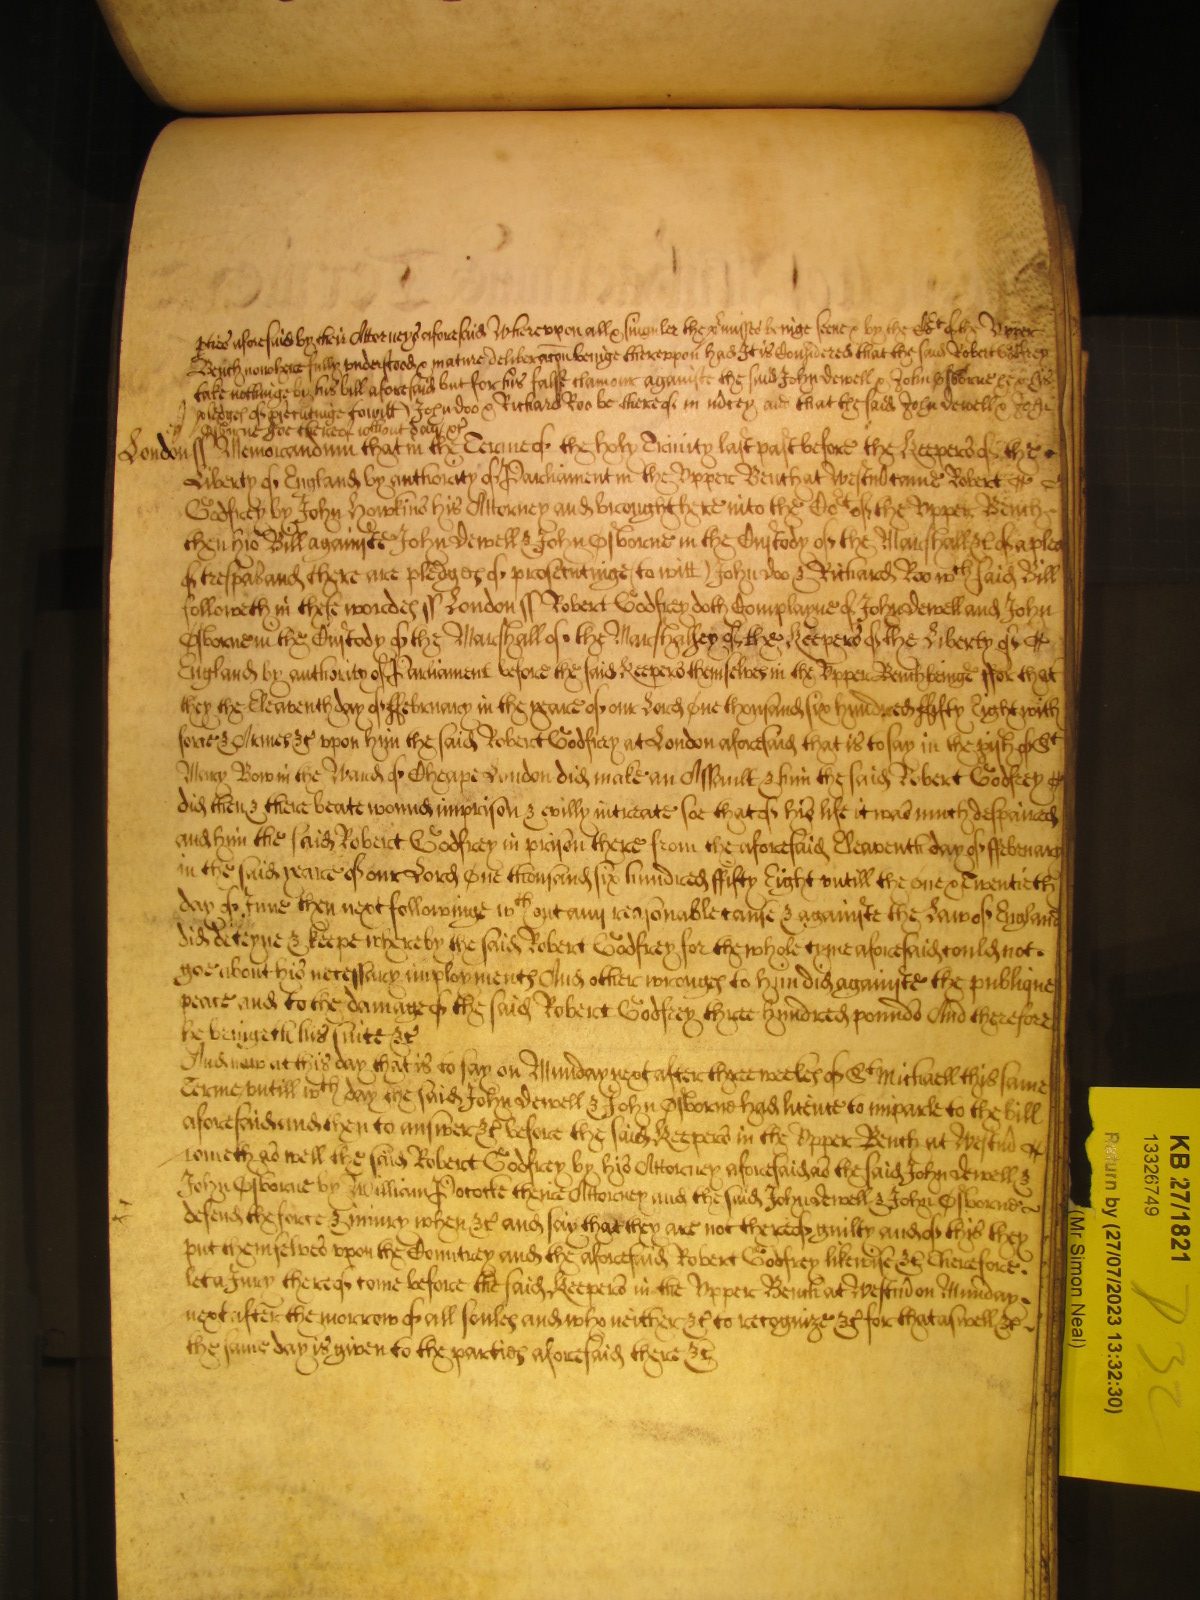 pties aforesaid by their Attorneys aforesaid Whereupon all & singuler the p'misses beinge seene & by the Co:rt of the Upper
Bench nowhere fully understood & mature deliberacon beinge thereupon had It is Considered that the said Robert Godfrey
take nothinge by his bill aforesaid but for his false clamour againste the said John Dewell & John Osborne he & his
pledges of prsecutinge (to witt) John Doo & Richard Roo be thereof in mercy and that the said John Dewell & John
Osborne goe thereof without day &c
London ss Memorandum that in the Terme of the holy Trinity last past before the Keepers of the
Liberty of England by authority of Parliament in the Upper Bench at Westmr came Robert
Godfrey by John Howkins his Attorney and brought here into the Co:rt of the Upper Bench
then his Bill againste John Dewell & John Osborne in the Custody of the Marshall &c of a plea
of trespas and there are pledges of prosecutinge (to witt) John Doo & Richard Roo wch said Bill
followeth in these wordes ss London ss Robert Godfrey doth Complayne of John Dewell and John
Osborne in the Custody of the Marshall of the Marshalsey of the Keepers of the Liberty of
England by authority of Parliament before the said Keepers themselves in the Upper Bench beinge ffor that
they the Eleaventh day of ffebruary in the yeare of our Lord One thousand six hundred ffifty Eight with
force & Armes &c upon him the said Robert Godfrey at London aforesaid that is to say in the pish of St
Mary Bow in the Ward of Cheape London did make an Assault & him the said Robert Godfrey
did then & there beate wound imprison & evilly intreate soe that of his life it was much despaired
and him the said Robert Godfrey in prison there from the aforesaid Eleaventh day of ffebruary
in the said yeare of our Lord One thousand six hundred ffifty Eight untill the one & Twentieth
day of June then next followinge wthout any reasonable cause & againste the Law of England
did deteyne & keepe whereby the said Robert Godfrey for the whole tyme aforesaid could not
goe about his necessary imployments And other wronges to him did againste the publique
peace and to the damage of the said Robert Godfrey three hundred pounds And therefore
he bringeth his suite &c
And now at this day that is to say on Munday next after three weekes of St Michaell this same
Terme untill wch day the said John Dewell & John Osborne had licence to imparle to the bill
aforesaid and then to answer &c before the said Keepers in the Upper Bench at Westmr
cometh as well the said Robert Godfrey by his Attorney aforesaid as the said John Dewell &
John Osborne by William Pococke theire Attorney and the said John Dewell & John Osborne
defend the force & iniury when &c and say that they are not thereof guilty and of this they
put themselves upon the Countrey and the aforesaid Robert Godfrey likewise &c Therefore
let a Jury thereof come before the said Keepers in the Upper Bench at Westmr on Munday
next after the morrow of all soules and who neither &c to recognize &c for that aswell &c
the same day is given to the parties aforesaid there &c
KB 27/1821
13326749
Return by (27/07/2023 13:32:30)
(Mr Simon Neal)